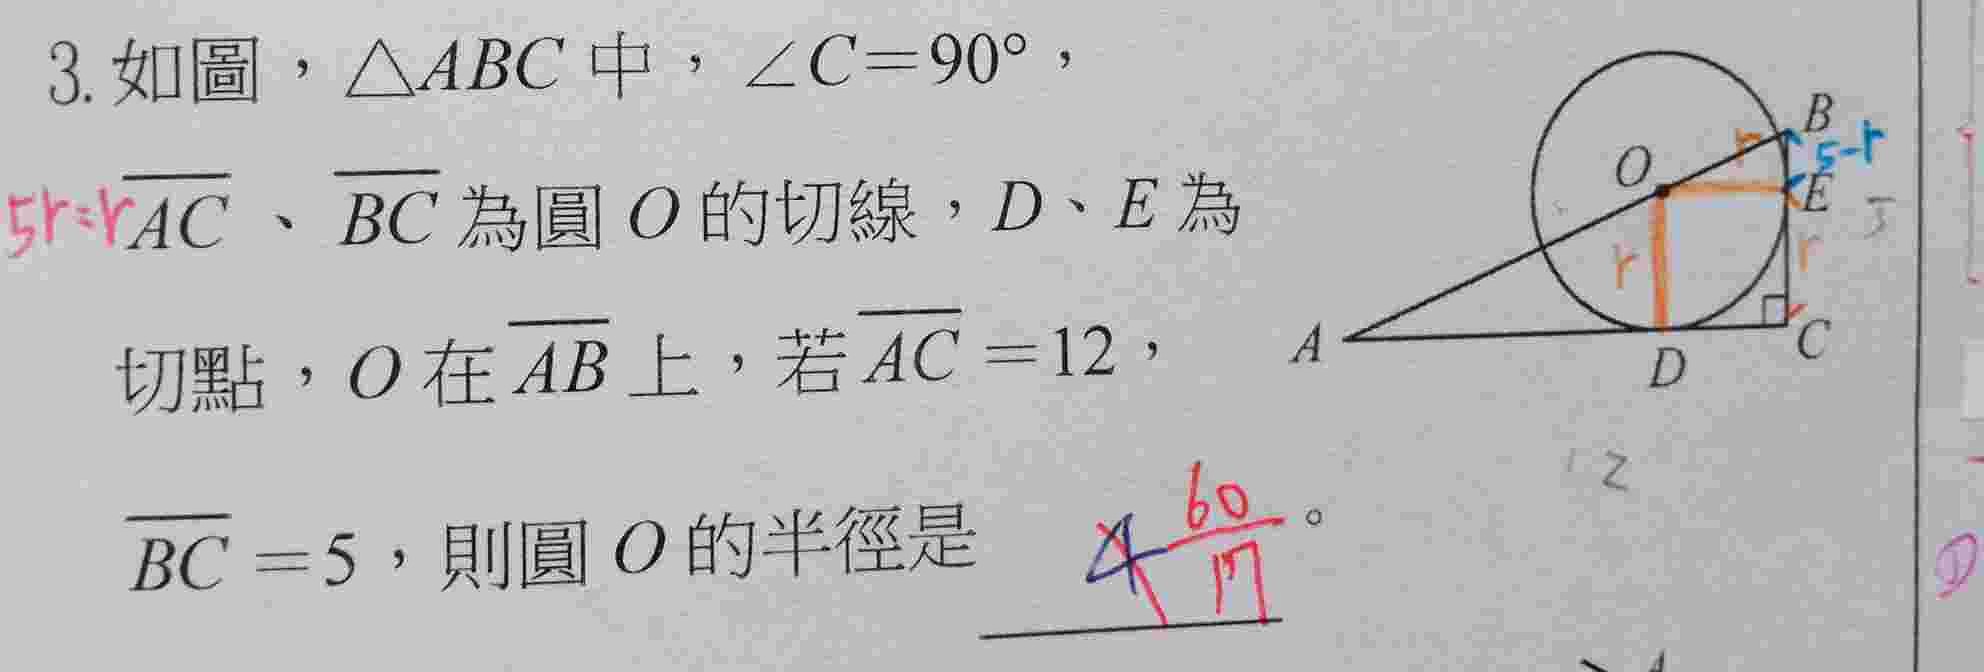 3. 如圖，△ABC 中，∠C=90°，
5r=r
AC、BC 為圓 O 的切線，D、E 為
切點，O 在 AB 上，若 AC=12，
BC=5，則圓 O 的半徑是 4 60/17。
B
r
5-r
O
E
5
r
r
A
D
C
12
①